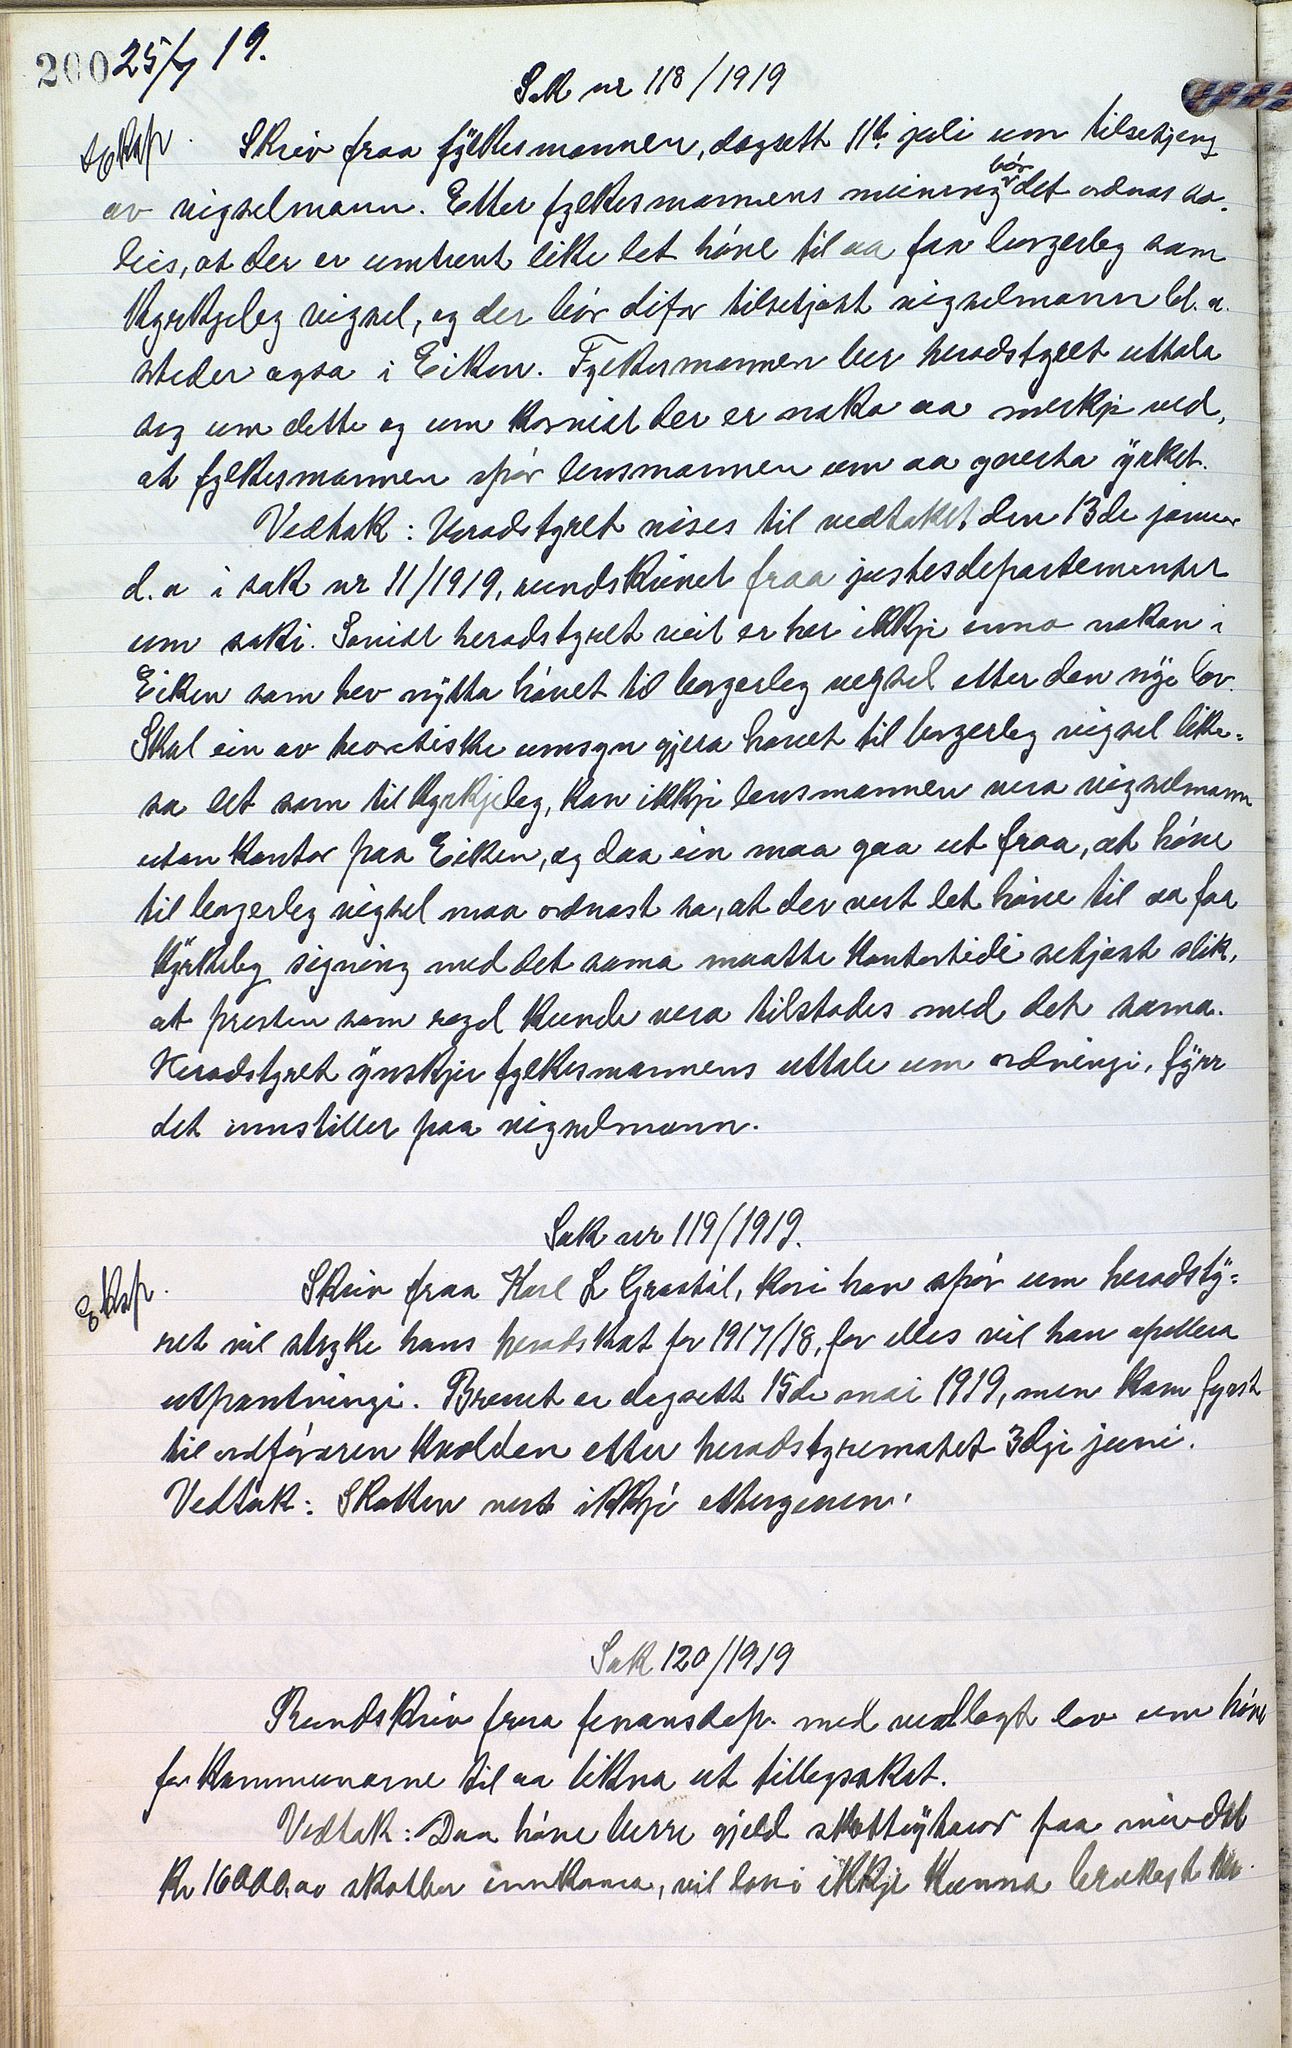 200 25/7 19.
Sak nr 118/1919
Eksp. Skriv fraa fylkesmannen, dagsett 11te juli um tilsetjing
av vigselmann. Etter fylkesmannens meining bör det ordnas so-
leis, at der er umtrent like let höve til aa faa borgerleg som
kyrkjeleg vigsel, og der bör difor tilsetjast vigselmann bl. a.
steder ogsa i Eiken. Fylkesmannen ber heradstyret uttala
seg um dette og um korvidt der er noko aa merkje ved,
at fylkesmannen spör lensmannen um aa yrket.
Vedtak: Heradstyret vises til vedtaket den 13de januar
d.a i sak nr 11/1919, rundskrivet fraa justisdepartementet
um saki. Sovidt heradstyret veit er her ikkje enno nokon i
Eiken som hev nytta hövet til borgerleg vegsel etter den nye lov.
Skal ein av teoretiske umsyn gjera hövet til borgerleg vigsel like-
so let som til kyrkjeleg, kan ikkje lensmannen vera vigselmann
utan kontor paa Eiken, og daa ein maa gaa ut fraa, at höve
til borgerleg vigsel maa ordnast so, at der vert let höve til aa faa
kyrkeleg signing med det sama maatte kontortidi setjast slik,
at presten som regel kunde vera tilstades med det sama.
Heradstyret ynskjer fylkesmannens uttale um ordningi, fyrr
det innstiller paa vigselmann.
Sak nr 119/1919.
Eksp. Skriv fraa Karl L Graatál, kori han spör um heradsty-
ret vil stryke hans heradskat for 1917/18, for elles vil han apellera
utpantningi. Brevet er dagsett 15de mai 1919, men kom fyrst
til ordföraren kvelden etter heradstyremötet 3dje juni.
Vedtak: Skatten vert ikkje ettergeven.
Sak 120/1919
Rundskriv fraa finansdep. med vedlagt lov um höve
for kommunarne til aa likna ut tillegsskat.
Vedtak: Daa höve berre gjeld skatteytarar paa mindst
Kr 16000, av skatbar innkoma, vil lovi ikkje kunna brukast her.